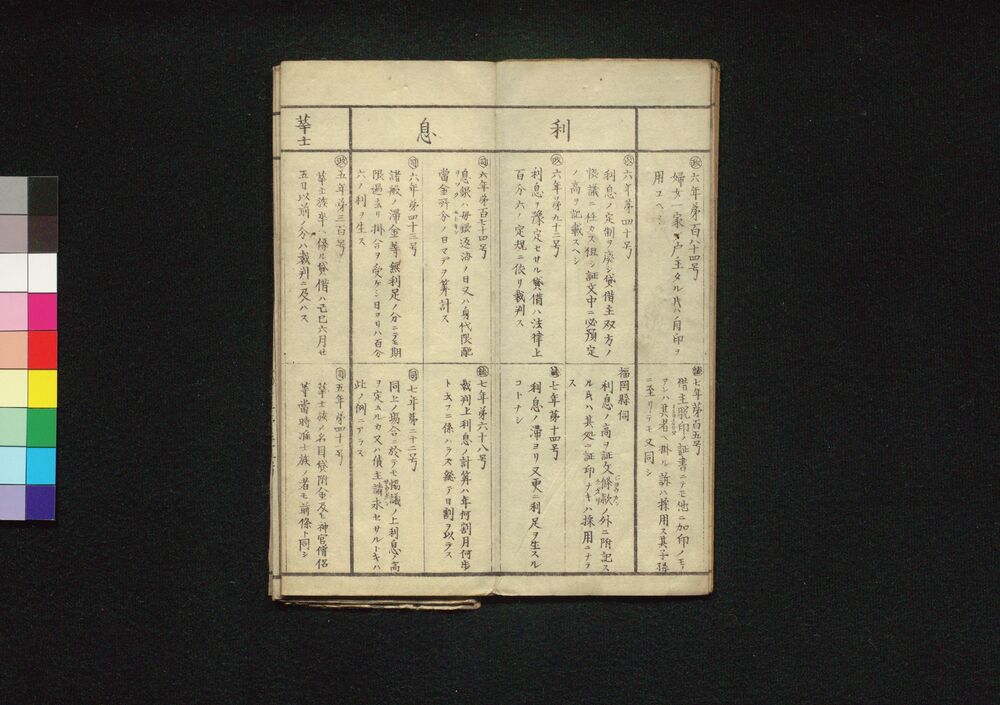 利
息
華士
六年第一百八十四号
婦女一家ノ戸主タル片ハ自印ヲ
用ユヘシ
七年第百五号
借主脱印ノ証書ニテモ他ニ加印ノモノ
アレハ其者ヘ掛ル訴ハ採用ス其子孫
ニ至リテモ又同シ
六年第四十号
利息ノ定制ヲ廃シ貸借主双方ノ
協議ニ任カス但シ証文中ニ必預定
ノ高ヲ記載スヘシ
福岡縣伺
利息ノ高ヲ証文條款ノ外ニ附記ス
ル片ハ其処ニ証印ナキハ採用ニナラ
ス
六年第九十三号
利息ヲ豫定セサル貸借ハ法律上
百分六ノ定規ニ依リ裁判ス
七年第十四号
利息ノ滞ヨリ又更ニ利足ヲ生スル
コトナシ
司 六年第百七十四号
息銀ハ母銀返済ノ日又ハ身代限配
當金所分ノ日マデヲ算計ス
七年第六十八号
裁判上利息ノ計算ハ年何割月何歩
ト云フニ係ハラス総テ日割ヲ以テス
司 六年第四十三号
諸般ノ滞金等無利足ノ分ニテモ期
限過去リ掛合ヲ受ケシ日ヨリハ百分
六ノ利ヲ生ス
同 七年第二十二号
同上ノ場合ニ於テモ協議ノ上利息ノ高
ヲ定ムルカ又ハ債主請求セサルトキハ
此ノ例ニアラス
五年第三百号
華士族卒ニ係ル貸借ハ己巳六月廿
五日以前ノ分ハ裁判ニ及ハス
司 五年第四十号
華士族ノ名目貸附金及ヒ神官僧侶
等當時准士族ノ者モ前條ト同シ